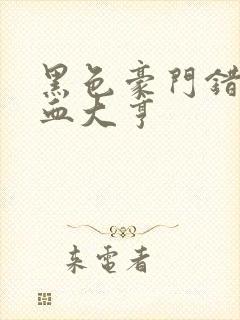 黑色豪門錯
血大亨
来電者